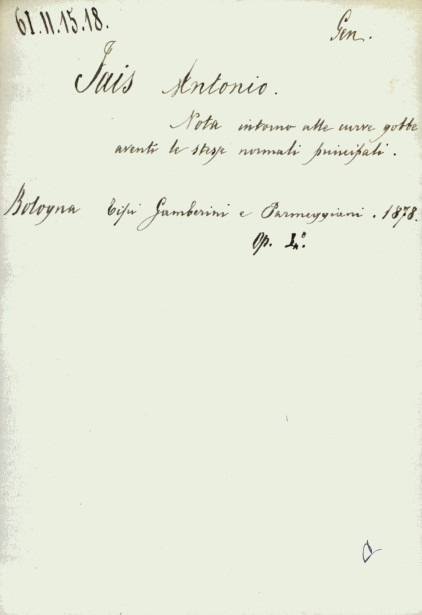 61.II.15.18.
Gen.
Fais Antonio.
Nota intorno alle curve gobbe
aventi le stesse normali principali.
Bologna Tipi Gamberini e Parmeggiani. 1878.
Op. in